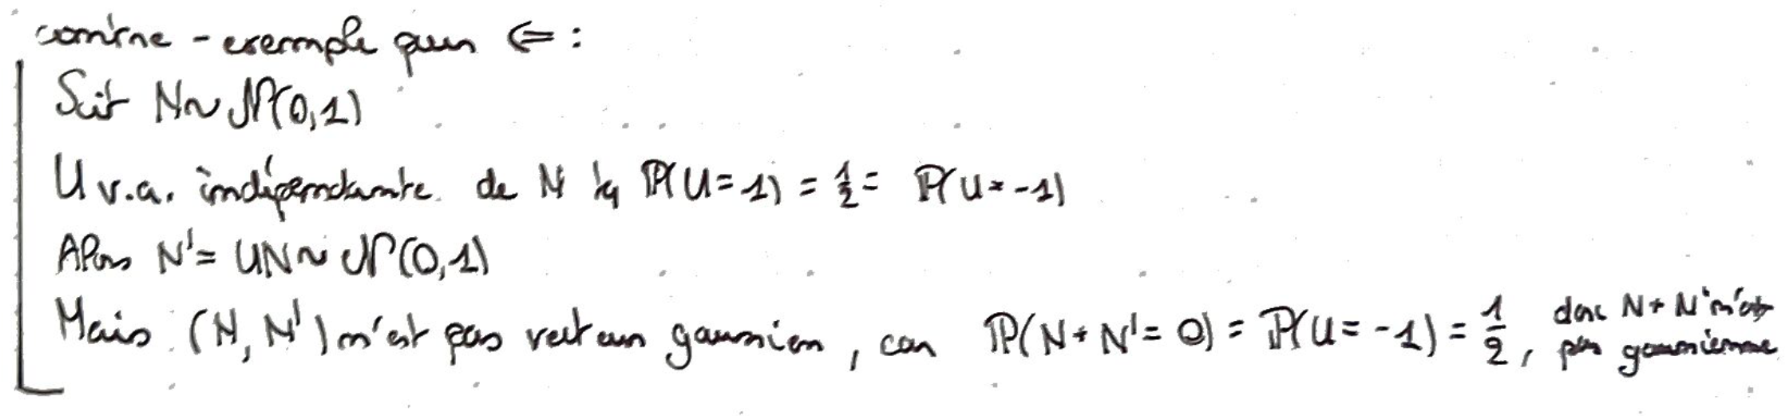 contre-exemple pour ⇐ :
Soit N ~ 𝒩(0,1)
U v.a. indépendante de N tq ℙ(U=1) = 1/2 = ℙ(U=-1)
Alors N' = UN ~ 𝒩(0,1)
Mais (N, N') n'est pas vecteur gaussien, car ℙ(N+N'=0) = ℙ(U=-1) = 1/2, donc N+N' n'est
pas gaussienne